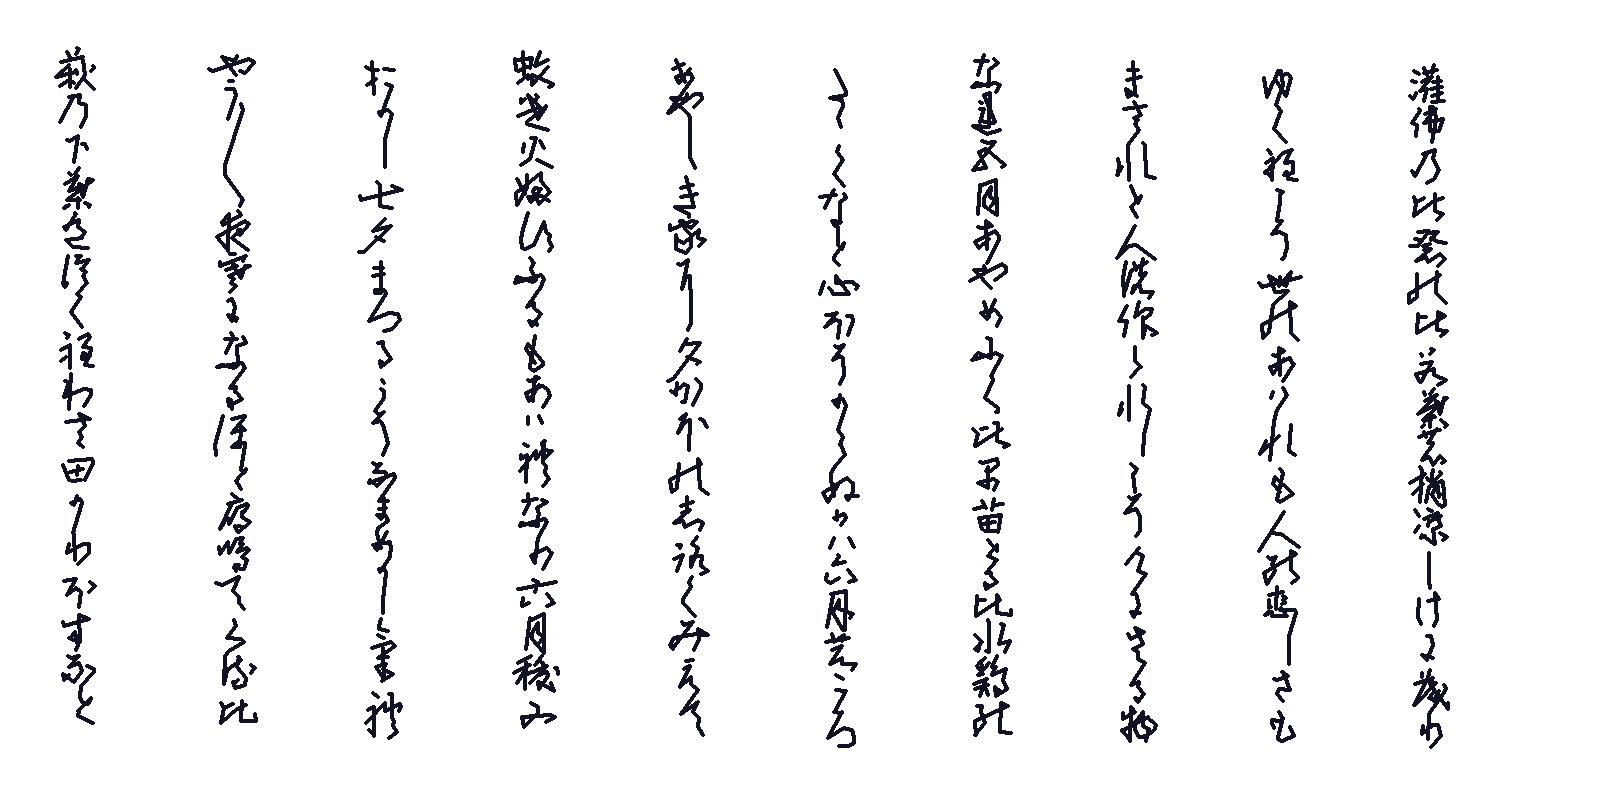 灌佛乃比祭の比若葉の梢涼しけに茂り
ゆく程こそ世のあはれも人の恋しさも
まされと人の仰られしこそけにさる物
なれ五月あやめふく比早苗とる比水鶏の
たゝくなと心ほそからぬかは六月のころ
あやしき家に夕かほのしろくみえて
蚊遣火ふすふるもあはれなり六月祓又
おかし七夕まつるこそなまめかしけれ
やう〳〵夜寒になるほと鴈鳴てくる比
萩乃下葉色つく程わさ田かりほすなと